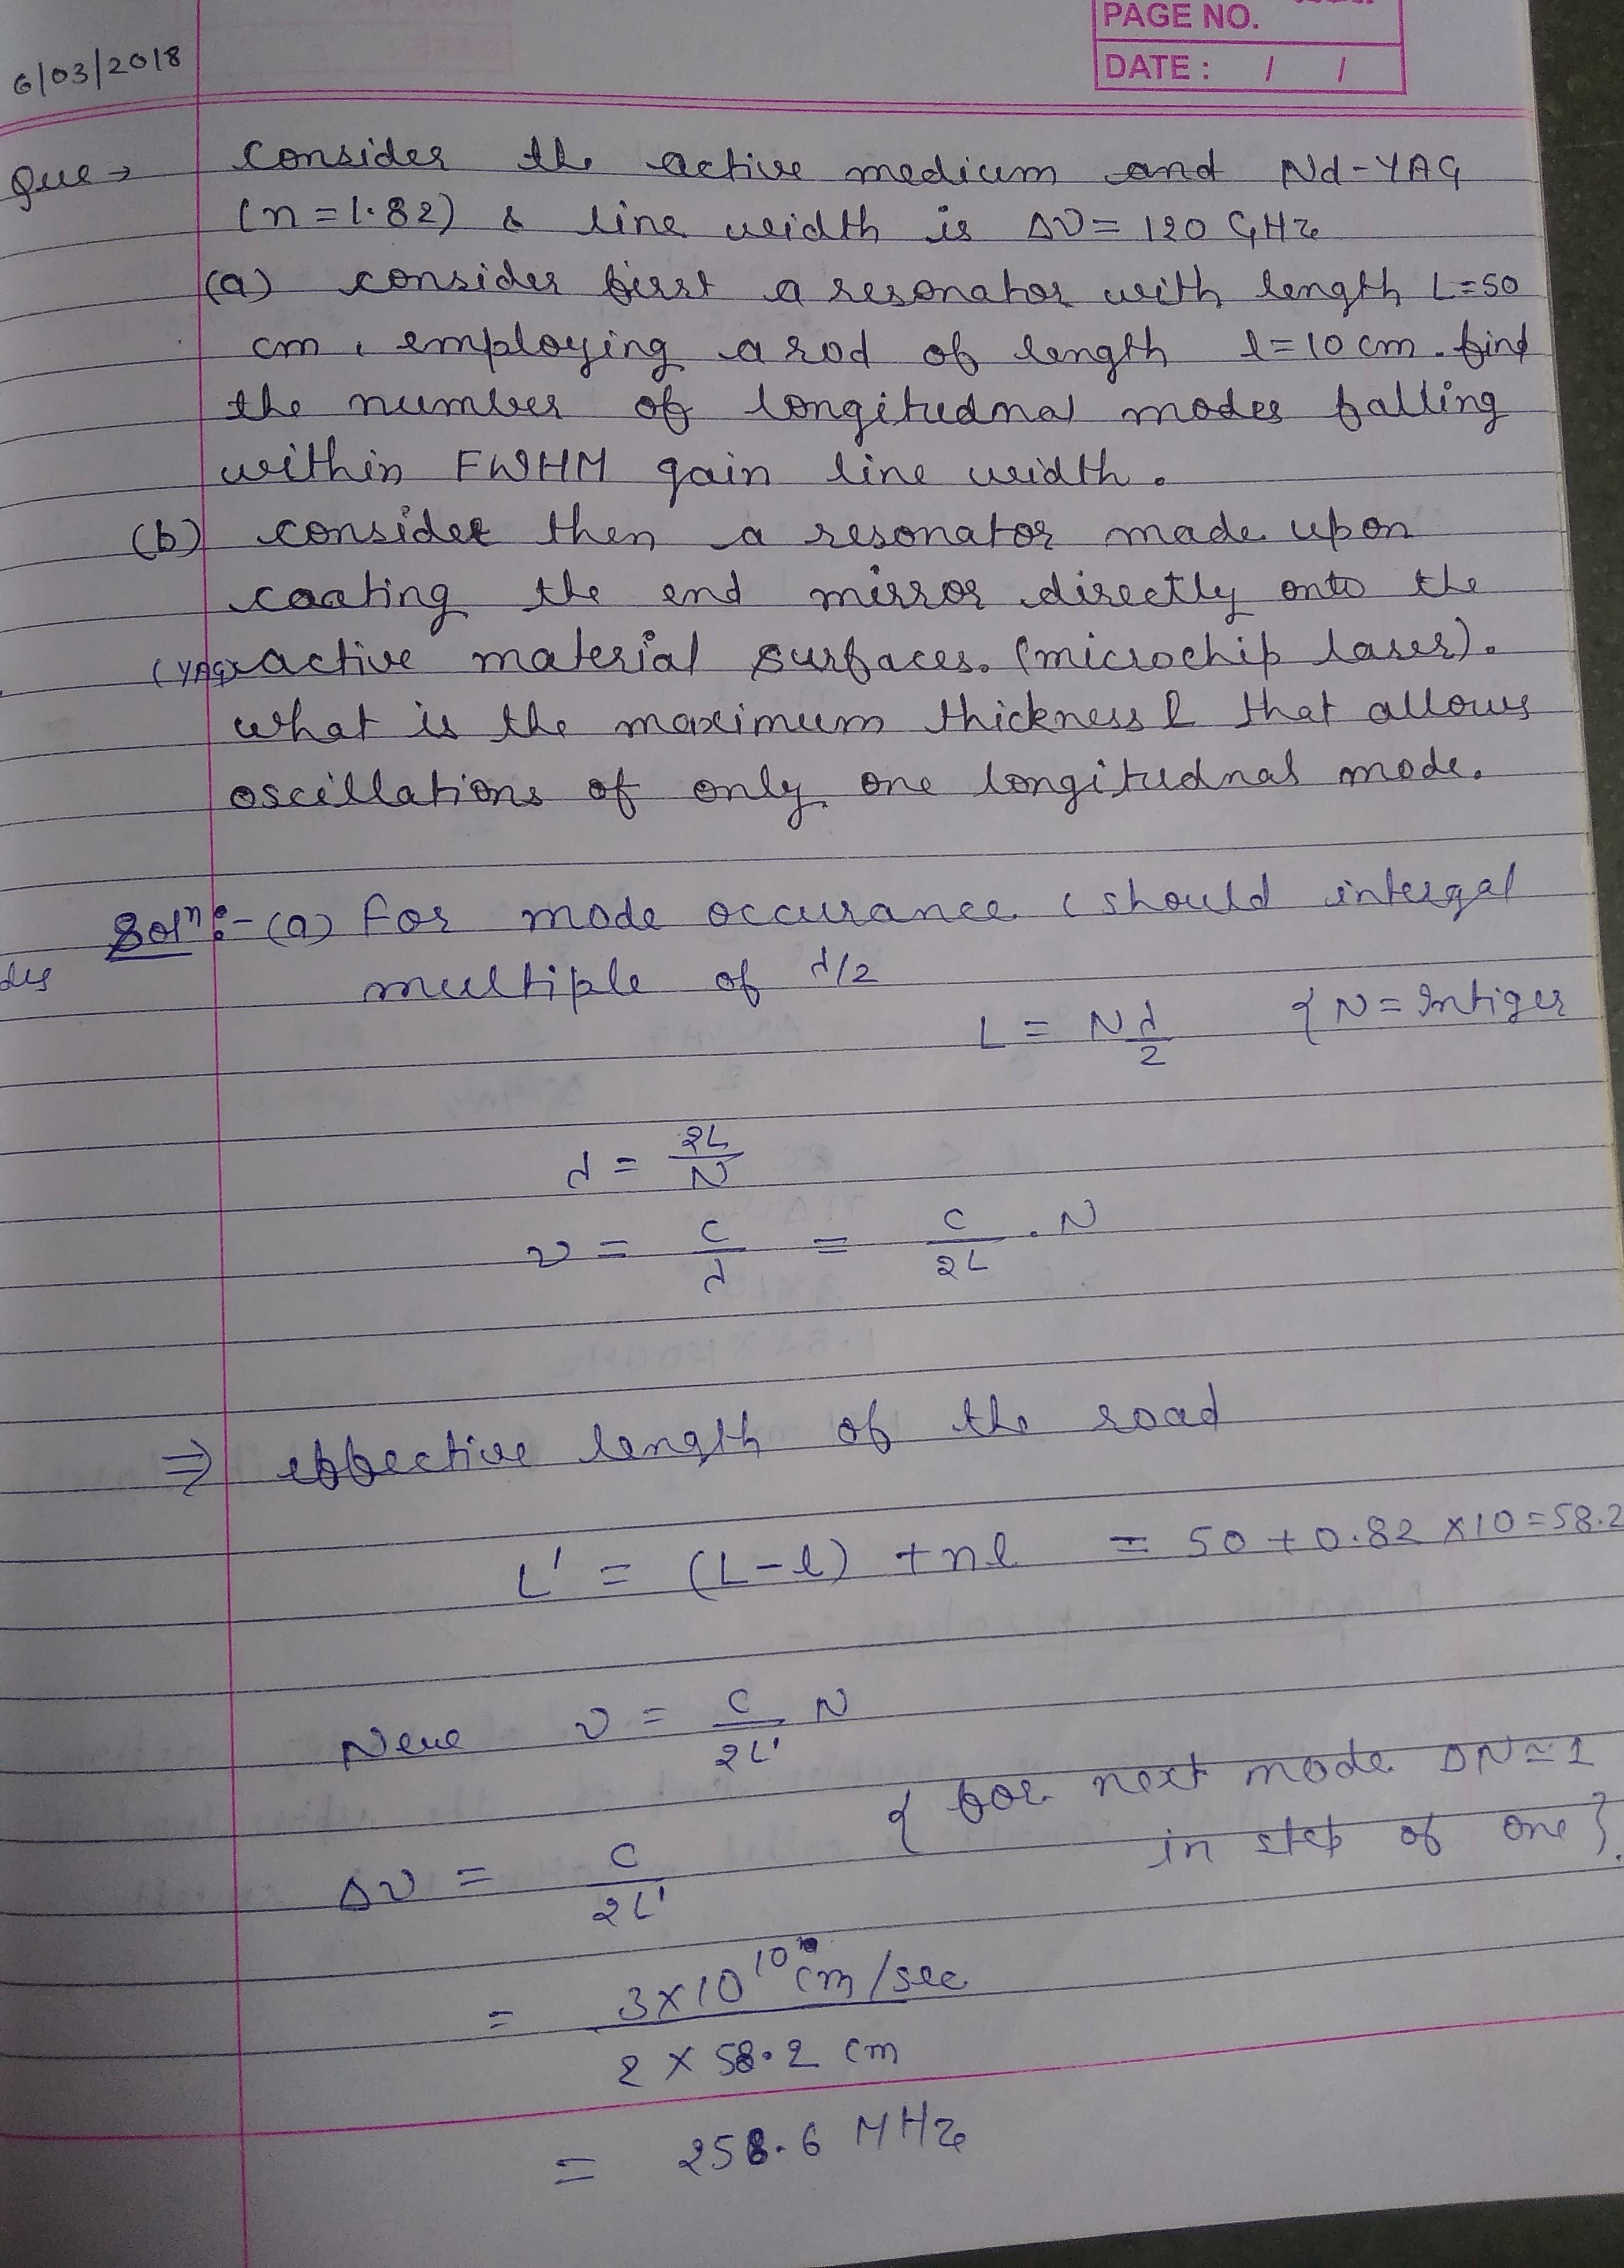 PAGE NO.
DATE : / /
6/03/2018
Que → Consider the active medium and Nd-YAG
(n=1.82) & line width is Δν = 120 GHz
(a) consider first a resonator with length L=50
cm, employing a rod of length l=10 cm. find
the number of longitudnal modes falling
within FWHM gain line width.
(b) consider then a resonator made upon
coating the end mirror directly onto the
(YAG) active material surfaces. (microchip laser).
what is the maximum thickness l that allows
oscillations of only one longitudnal mode.
Solⁿ:- (a) For mode occurance (should intergal
des
multiple of λ/2
L = Nλ/2 { N = Intiger
λ = 2L/N
ν = c/λ = c/2L . N
⇒ effective length of the road
L' = (L-l) + nl = 50 + 0.82 × 10 = 58.2
New ν = c/2L' N
{ for next mode ΔN = 1
in step of one }.
Δν = c/2L'
= 3×10¹⁰ cm/sec / 2 × 58.2 cm
= 258.6 MHz